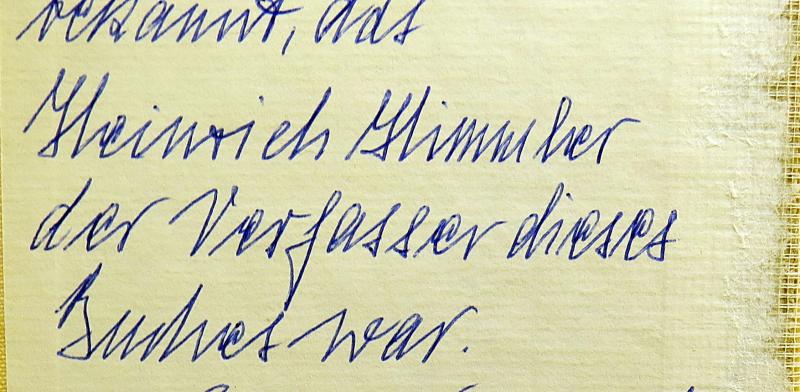 bekannt, das
Heinrich Himmler
der Verfasser dieses
Buches war.